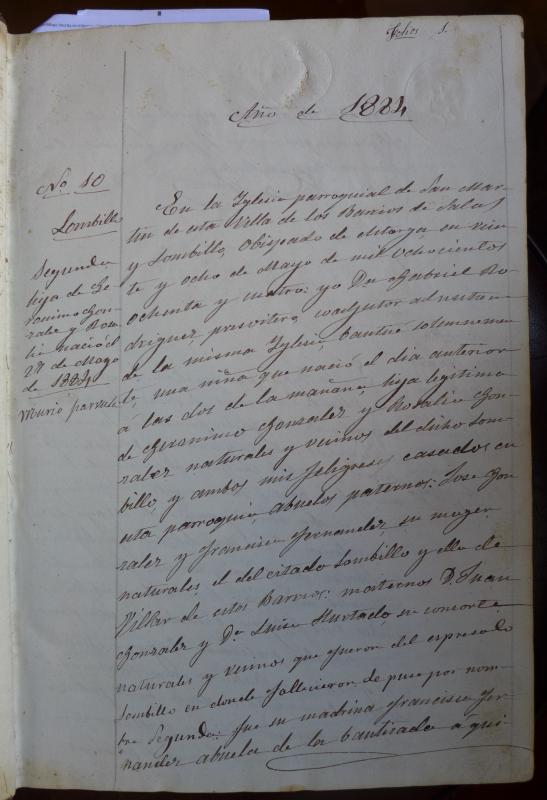 Folios 1.
Año de 1884
No. 10
Lombillo
Segunda
hija de Ge-
ronimo Gon-
zalez y Rosa-
lia nació el
27 de Mayo
de 1884
murió parvula
En la Yglesia parroquial de San Mar-
tin de esta Villa de los Barrios de Salas
y Lombillo, Obispado de Astorga en vein-
te y ocho de Mayo de mil ochocientos
ochenta y cuatro: yo Dn. Gabriel Ro-
driguez, presvitero, coadjutor
de la misma Yglesia, bautice solemnemen-
te, una niña que nació el dia anterior
a las dos de la mañana, hija legitima
de Geronimo Gonzalez y Rosalia Gon-
zalez naturales y vecinos del dicho Lom-
billo y ambos mis feligreses casados en
esta parroquia, abuelos paternos: Jose Gon-
zalez y Francisca Fernandez, su muger
naturales el del citado Lombillo y ella de
Villar de estos Barrios: maternos D. Juan
Gonzalez y Da. Luisa Hurtado su consorte
naturales y vecinos que fueron del espresado
Lombillo en donde fallecieron. de puse por nom-
bre Segunda: fue su madrina Francisca Fer-
nandez abuela de la bautizada á qui-